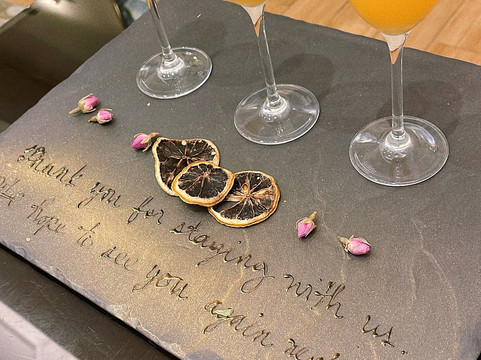 Thank you for staying with us
We hope to see you again